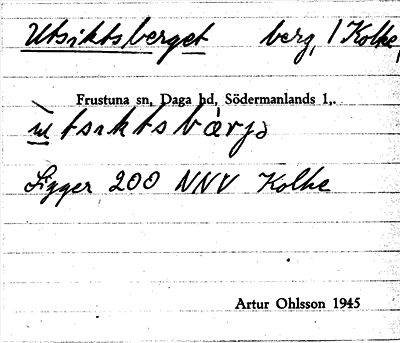 Utsiktsberget berg, / Kolke,
Frustuna sn, Daga hd, Södermanlands l.
Ligger 200 NNV Kolke
Artur Ohlsson 1945